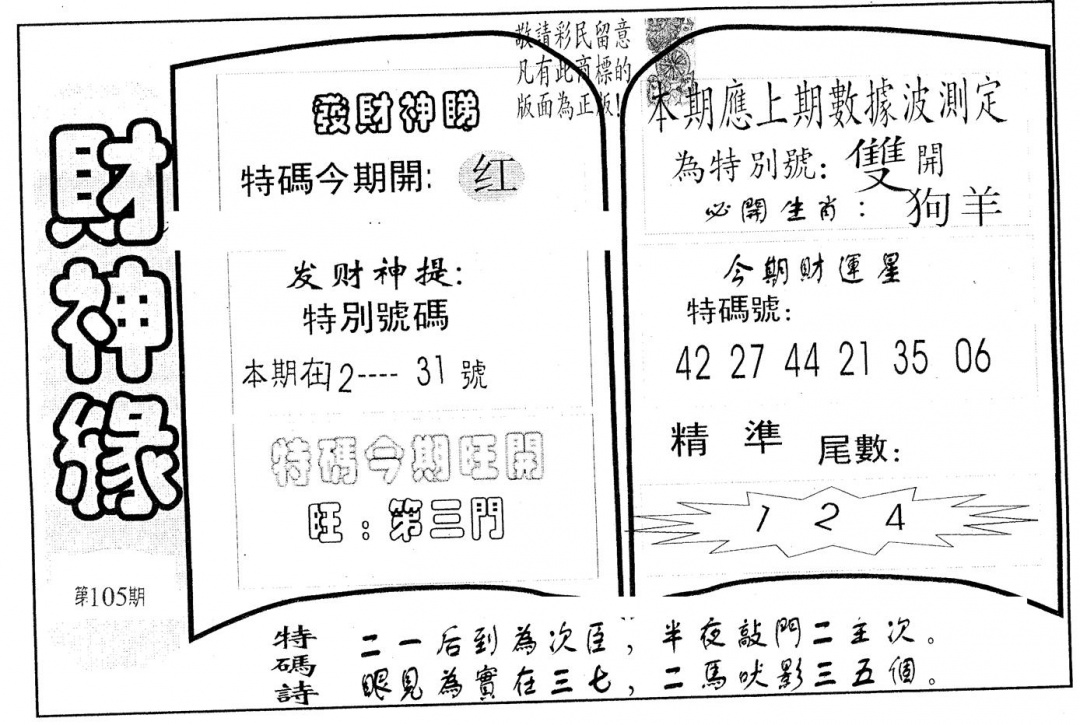 財神緣
第105期
敬請彩民留意
凡有此商標的
版面為正版!
發財神睇
特碼今期開: 红
发财神提:
特別號碼
本期在12---- 31 號
特碼今期旺開
旺:第三門
本期應上期數據波測定
為特別號: 雙開
必開生肖: 狗羊
今期財運星
特碼號:
42 27 44 21 35 06
精 準 尾數:
1 2 4
特碼詩
二一后到為次臣,半夜敲門二主次。
眼見為實在三七,二馬吠影三五個。